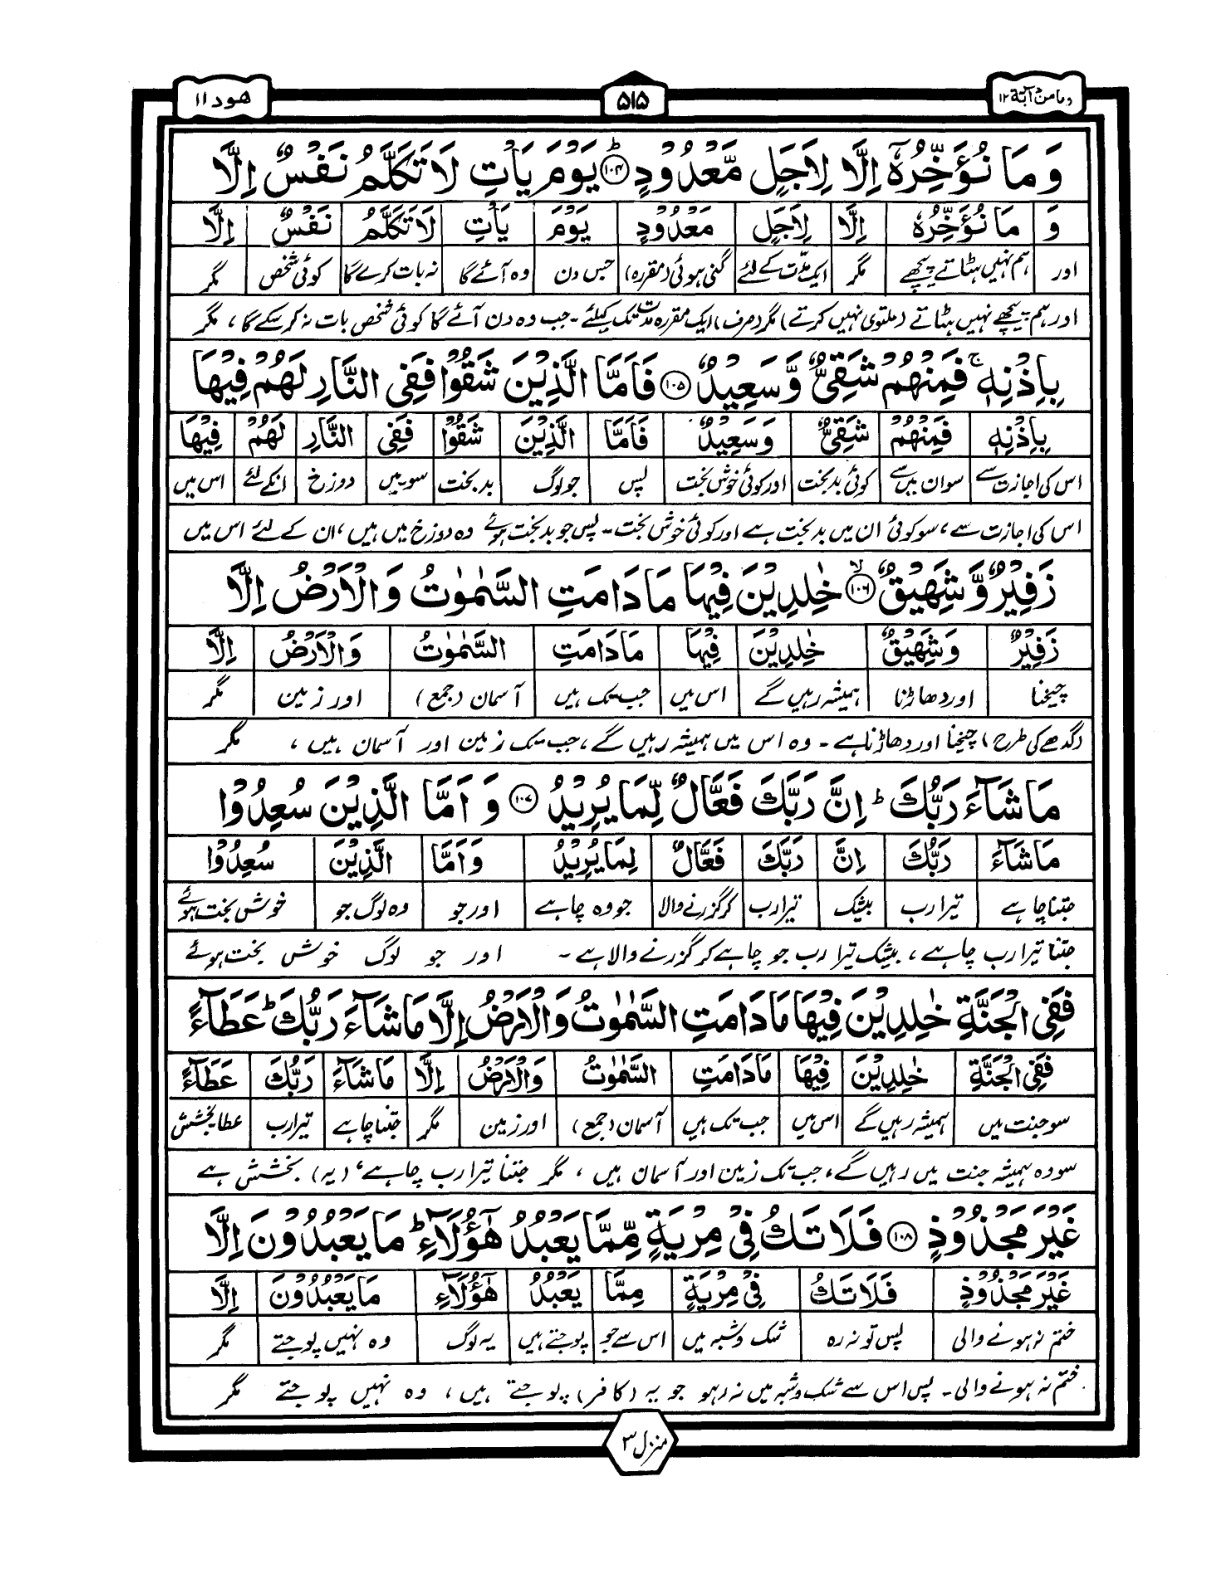 وما من دآبة ١٢
۵۱۵
هود ١١
وَمَا نُؤَخِّرُهٗۤ اِلَّا لِاَجَلٍ مَّعْدُوْدٍ ؕ۝۱۰۴ يَوْمَ يَاْتِ لَا تَكَلَّمُ نَفْسٌ اِلَّا
وَ مَا نُؤَخِّرُهٗ اِلَّا لِاَجَلٍ مَعْدُوْدٍ يَوْمَ يَاْتِ لَا تَكَلَّمُ نَفْسٌ اِلَّا
اور ہم نہیں ہٹاتے پیچھے مگر ایک مدّت کے لئے گنی ہوئی (مقررہ) جس دن وہ آئے گا نہ بات کرے گا کوئی شخص مگر
اور ہم پیچھے نہیں ہٹاتے (ملتوی نہیں کرتے) مگر (صرف) ایک مقررہ مدت تک کیلئے۔ جب وہ دن آئے گا کوئی شخص بات نہ کر سکے گا، مگر
بِاِذْنِهٖ ۚ فَمِنْهُمْ شَقِىٌّ وَّسَعِيْدٌ ۝۱۰۵ فَاَمَّا الَّذِيْنَ شَقُوْا فَفِى النَّارِ لَهُمْ فِيْهَا
بِاِذْنِهٖ فَمِنْهُمْ شَقِىٌّ وَسَعِيْدٌ فَاَمَّا الَّذِيْنَ شَقُوْا فَفِى النَّارِ لَهُمْ فِيْهَا
اس کی اجازت سے سو ان میں سے کوئی بدبخت اور کوئی خوش بخت پس جو لوگ بدبخت سو میں دوزخ انکے لئے اس میں
اس کی اجازت سے، سو کوئی ان میں بدبخت ہے اور کوئی خوش بخت۔ پس جو بدبخت ہوئے وہ دوزخ میں ہیں، ان کے لئے اس میں
زَفِيْرٌ وَّشَهِيْقٌ ۙ۝۱۰۶ خٰلِدِيْنَ فِيْهَا مَا دَامَتِ السَّمٰوٰتُ وَالْاَرْضُ اِلَّا
زَفِيْرٌ وَشَهِيْقٌ خٰلِدِيْنَ فِيْهَا مَا دَامَتِ السَّمٰوٰتُ وَالْاَرْضُ اِلَّا
چیخنا اور دھاڑنا ہمیشہ رہیں گے اس میں جب تک ہیں آسمان (جمع) اور زمین مگر
(گدھے کی طرح) چیخنا اور دھاڑنا ہے۔ وہ اس میں ہمیشہ رہیں گے، جب تک زمین اور آسمان ہیں، مگر
مَا شَآءَ رَبُّكَ ؕ اِنَّ رَبَّكَ فَعَّالٌ لِّمَا يُرِيْدُ ۝۱۰۷ وَ اَمَّا الَّذِيْنَ سُعِدُوْا
مَا شَآءَ رَبُّكَ اِنَّ رَبَّكَ فَعَّالٌ لِمَا يُرِيْدُ وَاَمَّا الَّذِيْنَ سُعِدُوْا
جتنا چاہے تیرا رب بیشک تیرا رب کر گزرنے والا جو وہ چاہے اور جو وہ لوگ جو خوش بخت ہوئے
جتنا تیرا رب چاہے، بیشک تیرا رب جو چاہے کر گزرنے والا ہے۔ اور جو لوگ خوش بخت ہوئے
فَفِى الْجَنَّةِ خٰلِدِيْنَ فِيْهَا مَا دَامَتِ السَّمٰوٰتُ وَالْاَرْضُ اِلَّا مَا شَآءَ رَبُّكَ ؕ عَطَآءً
فَفِى الْجَنَّةِ خٰلِدِيْنَ فِيْهَا مَا دَامَتِ السَّمٰوٰتُ وَالْاَرْضُ اِلَّا مَا شَآءَ رَبُّكَ عَطَآءً
سو جنت میں ہمیشہ رہیں گے اس میں جب تک ہیں آسمان (جمع) اور زمین مگر جتنا چاہے تیرا رب عطا بخشش
سو وہ ہمیشہ جنت میں رہیں گے، جب تک زمین اور آسمان ہیں، مگر جتنا تیرا رب چاہے، (یہ) بخشش ہے
غَيْرَ مَجْذُوْذٍ ۝۱۰۸ فَلَا تَكُ فِىْ مِرْيَةٍ مِّمَّا يَعْبُدُ هٰٓؤُلَآءِ ؕ مَا يَعْبُدُوْنَ اِلَّا
غَيْرَ مَجْذُوْذٍ فَلَا تَكُ فِىْ مِرْيَةٍ مِمَّا يَعْبُدُ هٰٓؤُلَآءِ مَا يَعْبُدُوْنَ اِلَّا
ختم نہ ہونے والی پس تو نہ رہ شک و شبہ میں اس سے جو پوجتے ہیں یہ لوگ وہ نہیں پوجتے مگر
ختم نہ ہونے والی۔ پس اس سے شک و شبہ میں نہ رہو جو یہ (کافر) پوجتے ہیں، وہ نہیں پوجتے مگر
منزل ۳